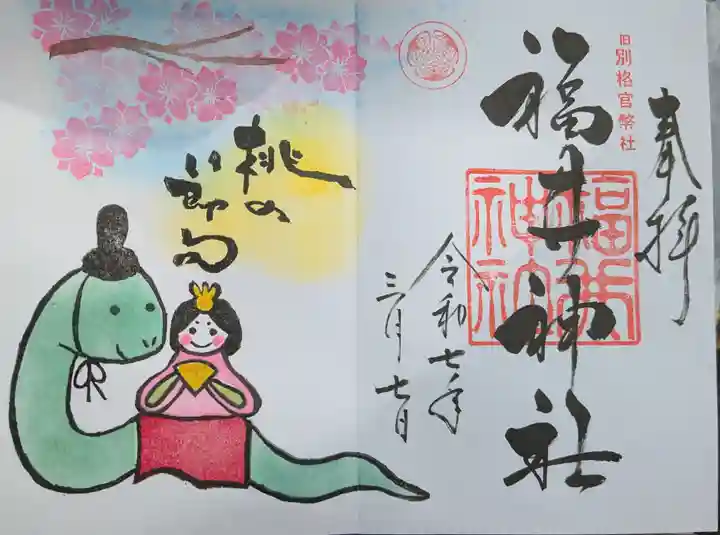 奉拝
旧別格官幣社
福井神社
福井
神社
令和七年
三月七日
桃の
節句